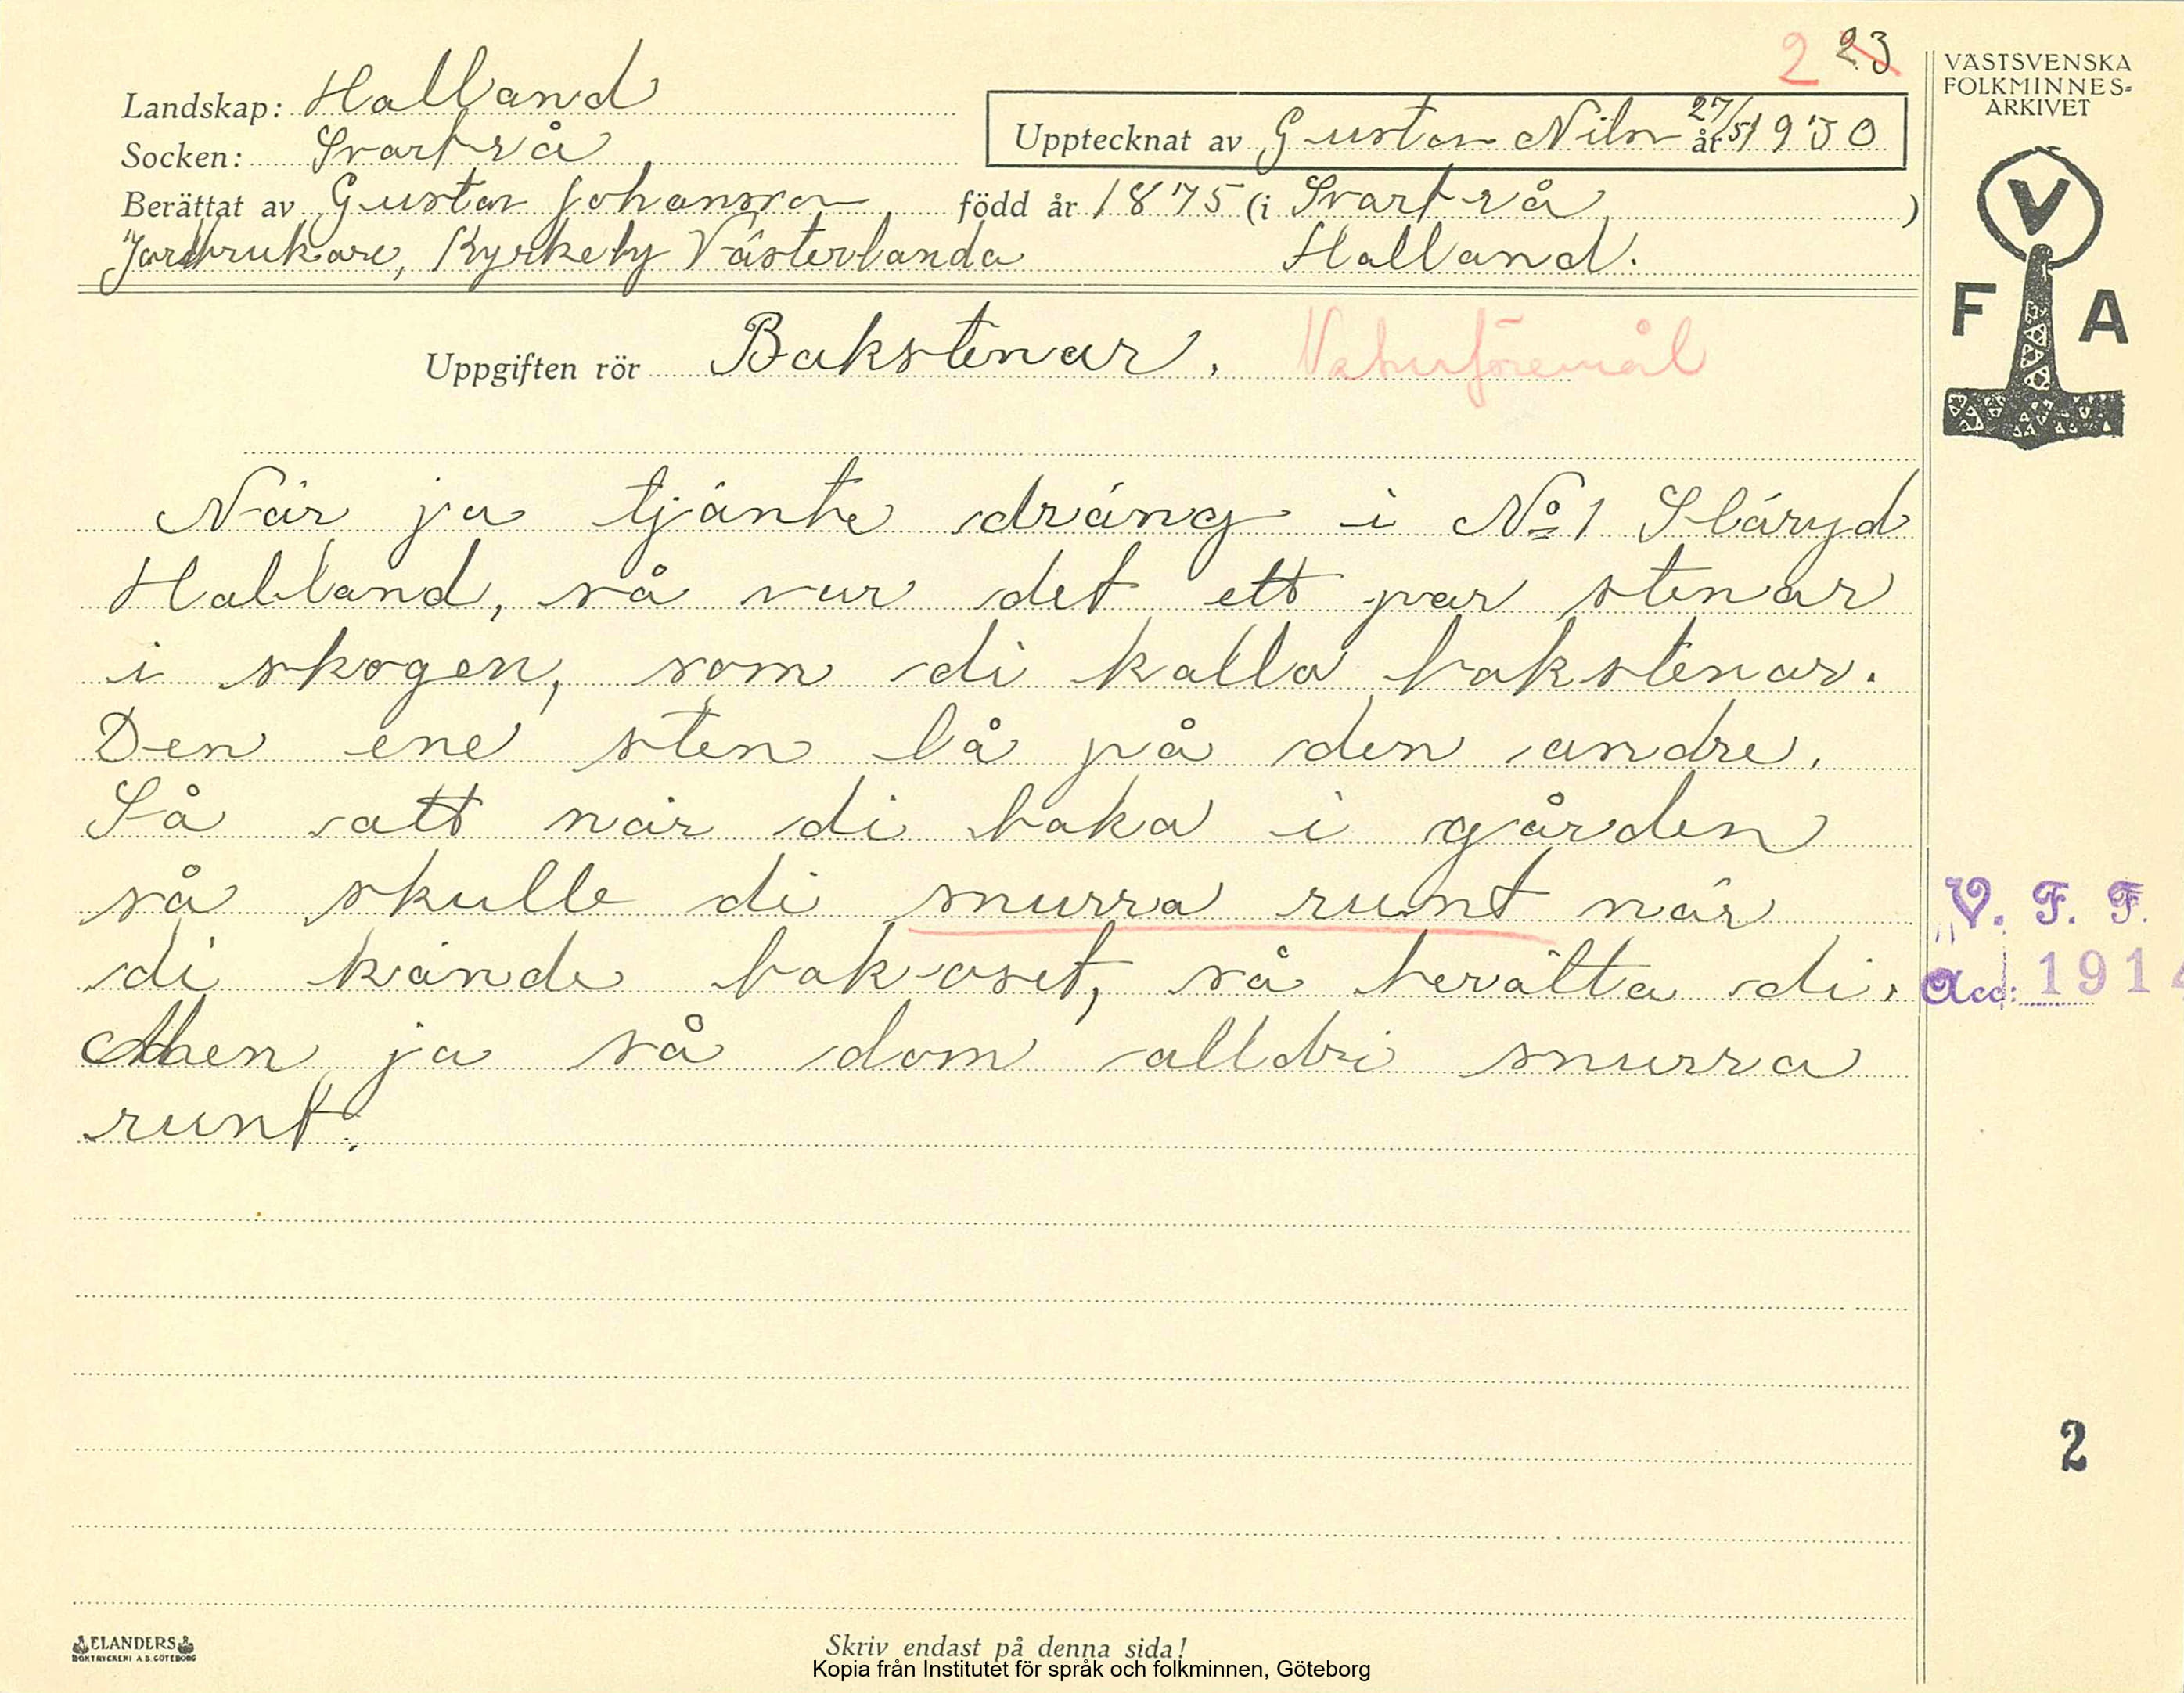 2 23
Landskap: Halland
Socken: Svartrå
Upptecknat av Gustav Niln 27/5 år 1930
Berättat av Gustav Johansson född år 1875 (i Svartrå )
Jordbrukare, Kyrkeby Västerlanda Halland.
Uppgiften rör Bakstenar. Naturföremål
När ja tjänte dräng i No 1 Släryd
Halland, så var det ett par stenar
i skogen, som di kalla bakstenar.
Den ene sten lå på den andre.
Så att när di baka i gården
så skulle di snurra runt när
di kände bak-oset, så berätta di.
Men ja så dom alldri snurra
runt.
VÄSTSVENSKA
FOLKMINNES-
ARKIVET
V
F A
V. F. F.
Acc: 1914
2
ELANDERS
BOKTRYCKERI A.B. GÖTEBORG
Skriv endast på denna sida!
Kopia från Institutet för språk och folkminnen, Göteborg